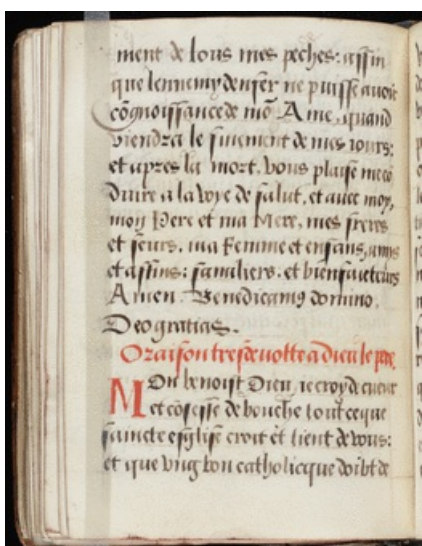 ment de tous mes peches: affin
que lennemy denfer ne puisse avoir
cõgnoissance de mõ Ame, quand
viendra le finement de mes iours:
et apres la mort, vous plaise me cõ
duire a la voye de salut, et avec moy,
mon Pere et ma Mere, mes freres
et seurs, ma Femme et enfans, amys
et affins: familiers, et bienfaicteurs
Amen. Benedicamꝰ domino.
Deo gratias.
Oraison tresdevotte a dieu le pere.
MOn benoist Dieu, ie croy de cueur
et cõfesse de bouche tout ce que
saincte esglise croit et tient de vous:
et que ung bon catholicque doibt de